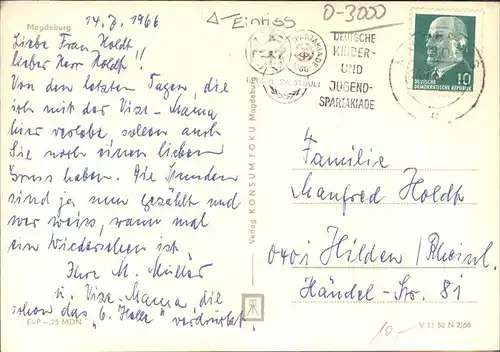 Magdeburg
14.7.1966
△ Einriss
D-3000
Liebe Frau Holdt
lieber Herr Holdt!!
Von den letzten Tagen, die
ich mit der Vize-Mama
hier verlebe, sollen auch
Sie noch einen lieben
Gruss haben. Die Stunden
sind ja nun gezählt und
wer weiss, wann mal
ein Wiedersehen ist,
Ihre M. Müller
u. Vize-Mama, die
schon das "6. Helle" verdrückt.
EVP -,25 MDN
Verlag KONSUM FOKU Magdeburg
SPARTAKIADE
DEUTSCHE
KINDER-
UND
JUGEND-
SPARTAKIADE
10
DEUTSCHE
DEMOKRATISCHE REPUBLIK
4
Familie
Manfred Holdt
0401 Hilden/Rheinl.
Händel-Str. 81
10,-
V 11 50 N 2/66